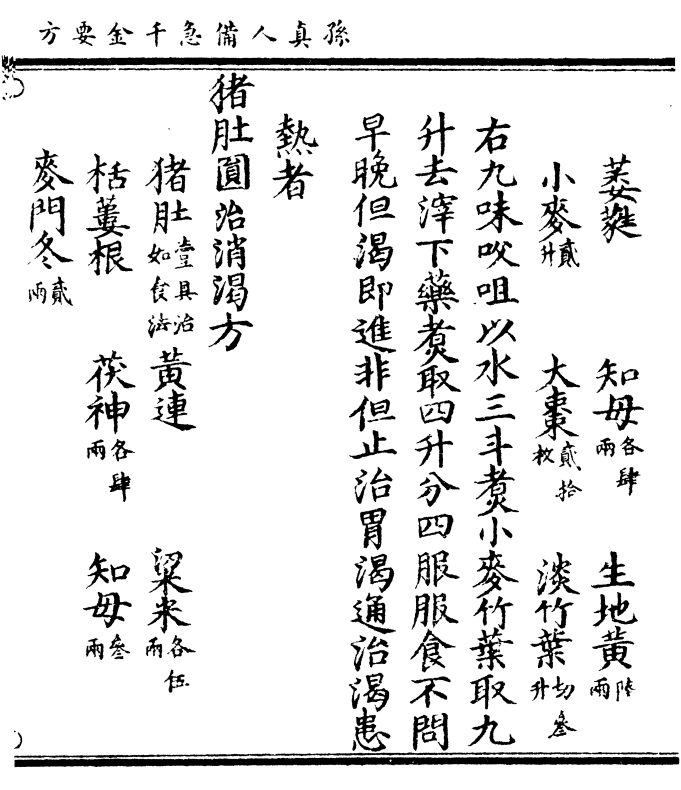 孫真人備急千金要方
萎蕤　知母各肆兩　生地黃陸兩
小麥貳升　大棗貳拾枚　淡竹葉切叄升
右九味㕮咀以水三斗煑小麥竹葉取九
升去滓下藥煑取四升分四服服食不問
早晚但渴即進非但止治胃渴通治渴患
熱者
猪肚圓治消渴方
猪肚壹具治如食法　黃連　粱米各伍兩
栝蔞根　茯神各肆兩　知母叄兩
麥門冬貳兩